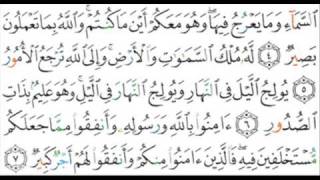 ٱلسَّمَآءِ وَمَا يَعْرُجُ فِيهَا ۖ وَهُوَ مَعَكُمْ أَيْنَ مَا كُنتُمْ ۚ وَٱللَّهُ بِمَا تَعْمَلُونَ
بَصِيرٌ ٤ لَّهُۥ مُلْكُ ٱلسَّمَٰوَٰتِ وَٱلْأَرْضِ ۚ وَإِلَى ٱللَّهِ تُرْجَعُ ٱلْأُمُورُ
٥ يُولِجُ ٱلَّيْلَ فِى ٱلنَّهَارِ وَيُولِجُ ٱلنَّهَارَ فِى ٱلَّيْلِ ۚ وَهُوَ عَلِيمٌۢ بِذَاتِ
ٱلصُّدُورِ ٦ ءَامِنُوا۟ بِٱللَّهِ وَرَسُولِهِۦ وَأَنفِقُوا۟ مِمَّا جَعَلَكُم
مُّسْتَخْلَفِينَ فِيهِ ۖ فَٱلَّذِينَ ءَامَنُوا۟ مِنكُمْ وَأَنفَقُوا۟ لَهُمْ أَجْرٌ كَبِيرٌ ٧